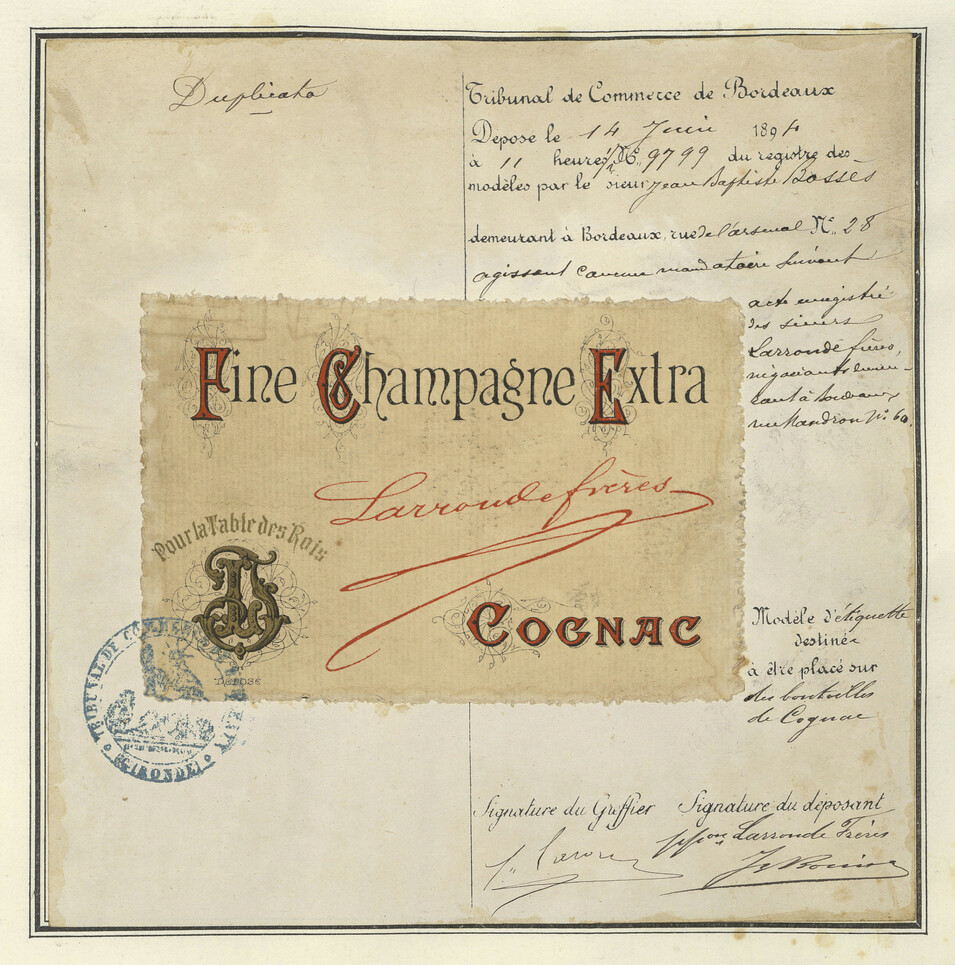 Duplicata
Tribunal de Commerce de Bordeaux
Déposé le 14 Juin 1894
à 11 heures 1/2 N° 9799 du registre des
modèles par le sieur Jean Baptiste
demeurant à Bordeaux, rue de l'arsenal N° 28
agissant comme mandataire suivant
acte enregistré
des sieurs
Larronde frères,
négociants demeu-
rant à Bordeaux
rue Mandron N° 60.
Fine Champagne Extra
Larronde frères
Pour la Table des Rois
Cognac
DÉPOSÉ
TRIBUNAL DE COMMERCE
(GIRONDE)
Modèle d'étiquette
destinée
à être placé sur
des bouteilles
de Cognac
Signature du Greffier Signature du déposant
ppon Larronde Frères